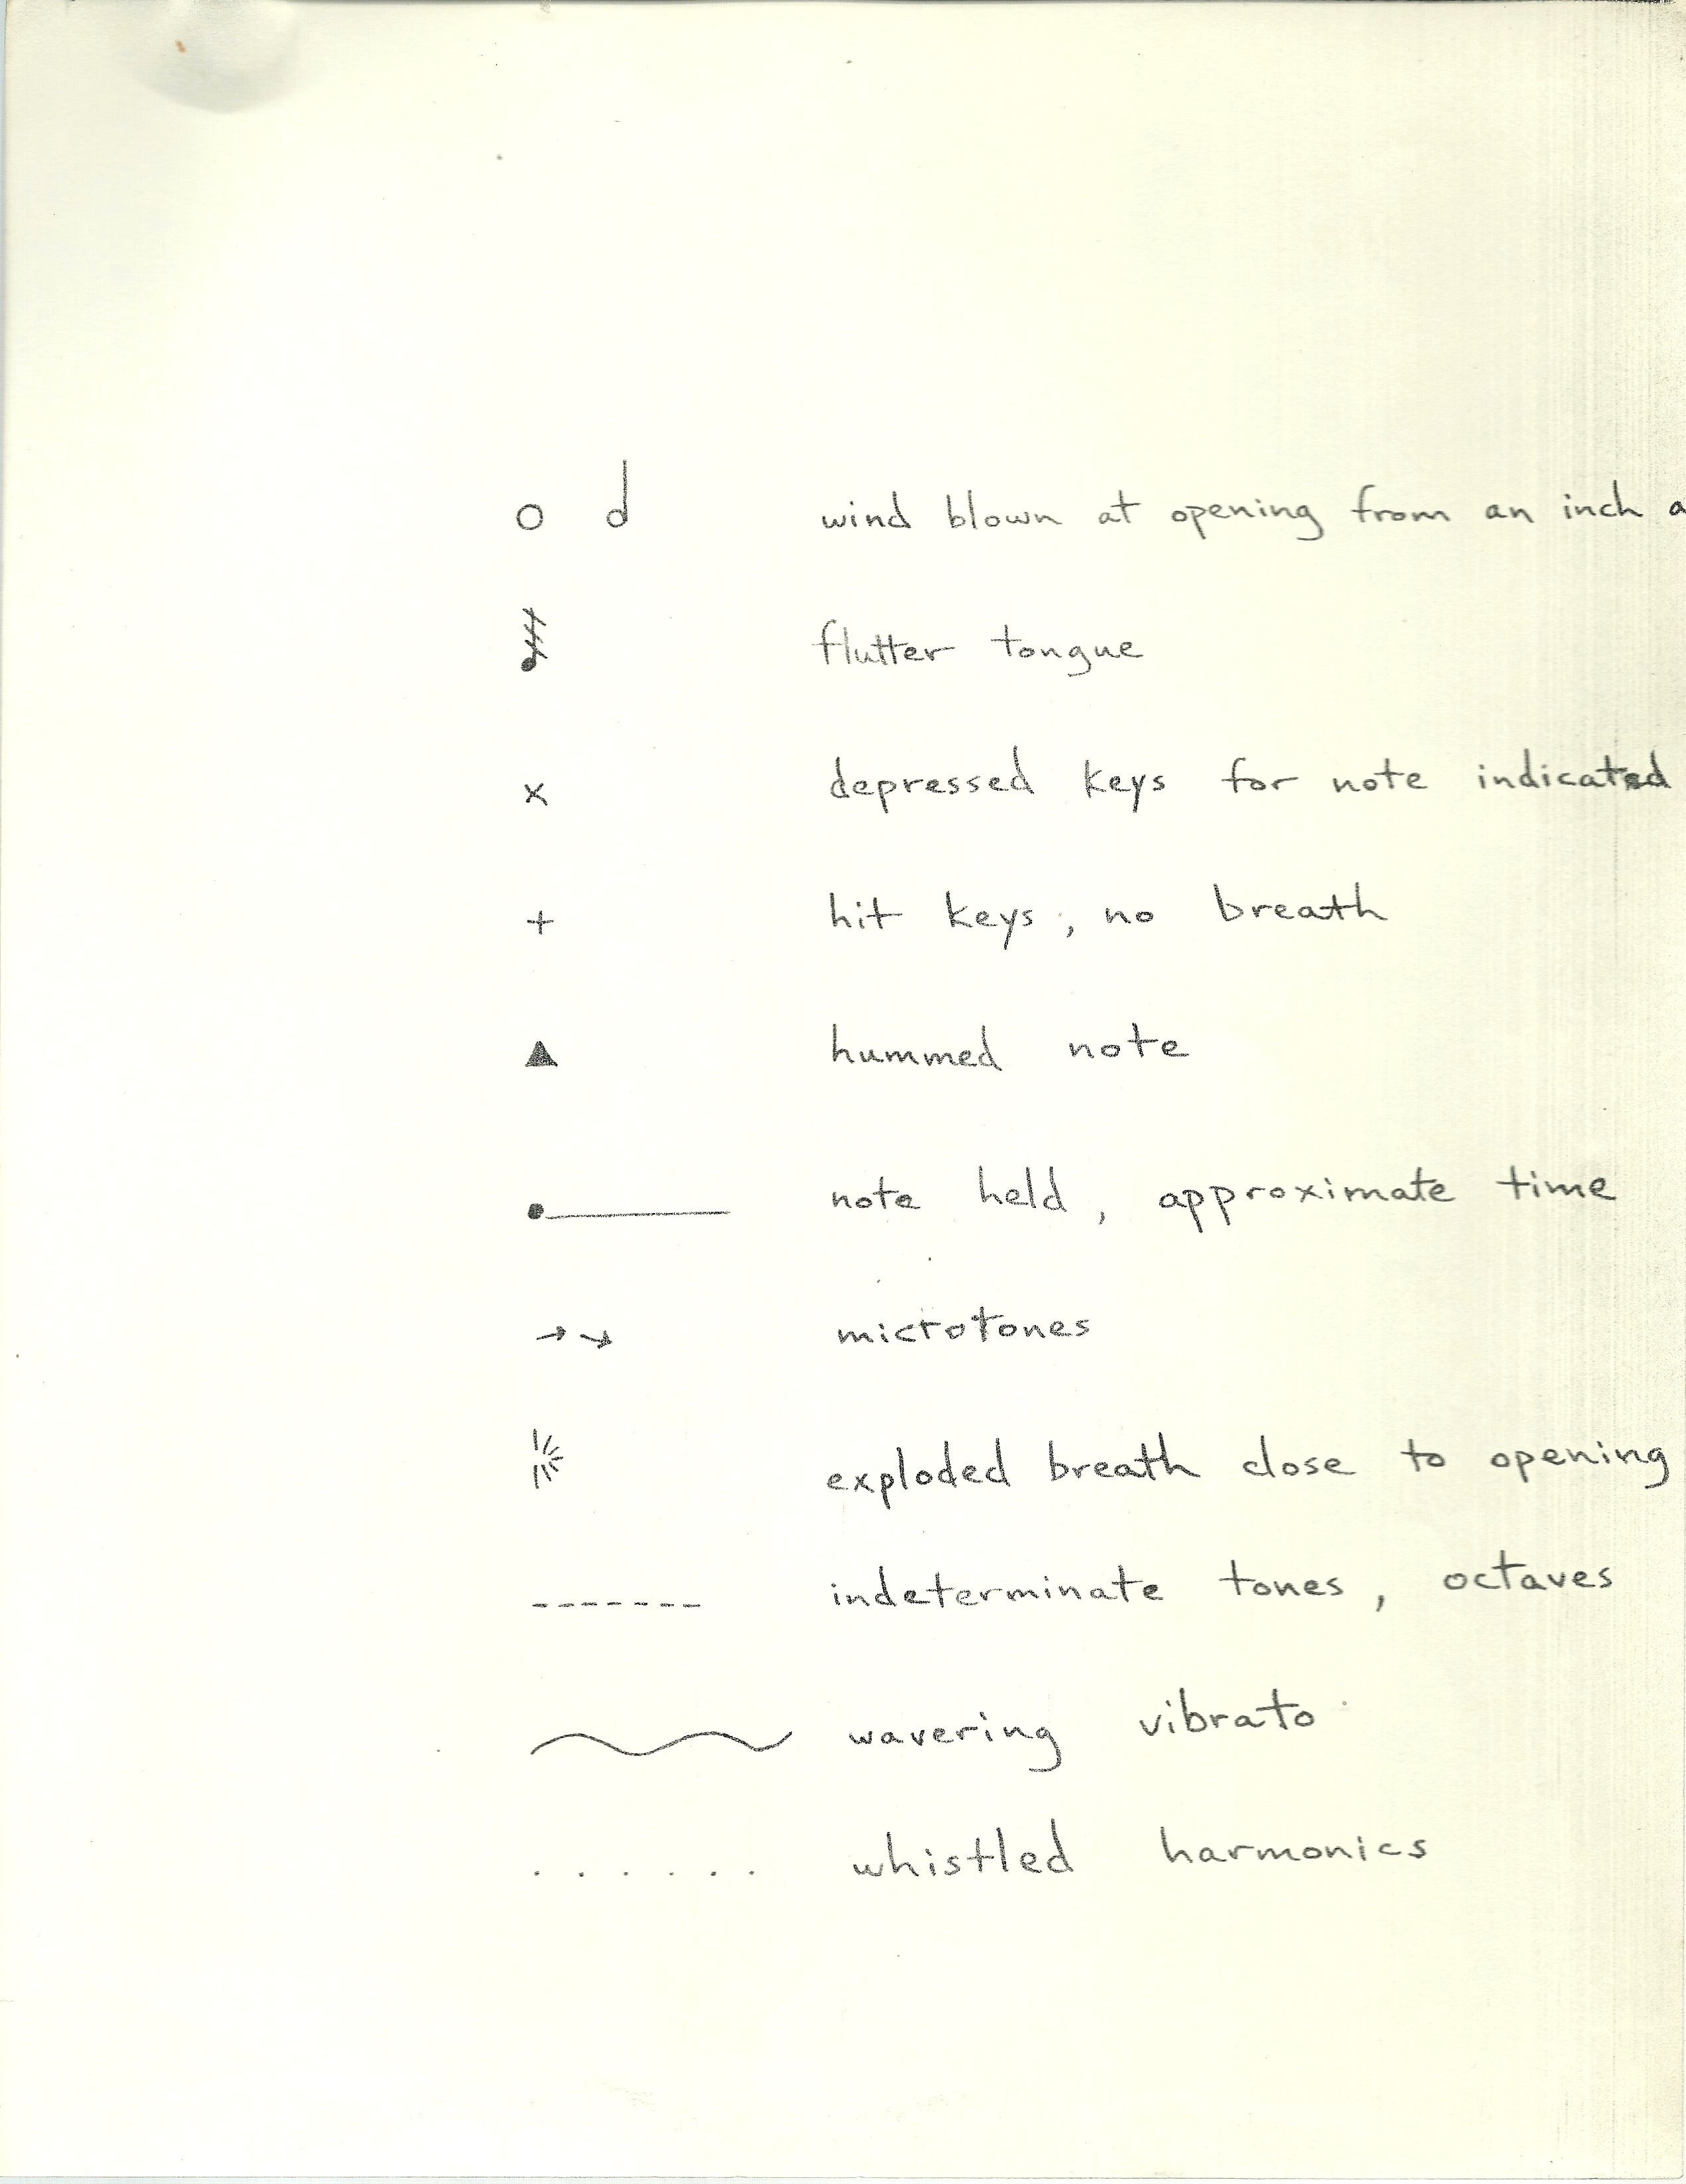 wind blown at opening from an inch a
flutter tongue
x depressed keys for note indicated
+ hit keys, no breath
▲ hummed note
note held, approximate time
→ ↘ microtones
exploded breath close to opening
------- indeterminate tones, octaves
wavering vibrato
. . . . . . whistled harmonics